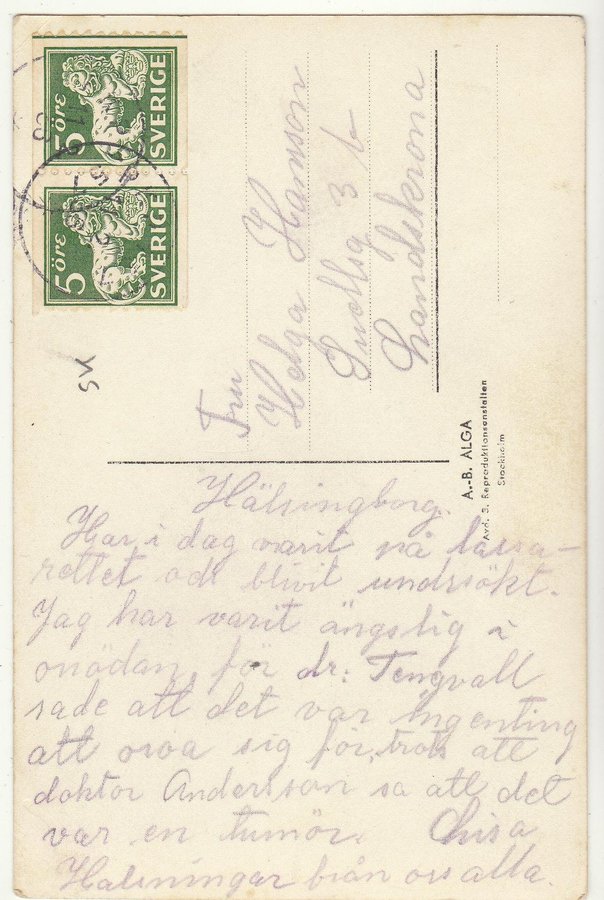 5 ÖRE SVERIGE
5 ÖRE SVERIGE
SK
Fru
Helga Hansson
3 b
Landskrona
A.-B. ALGA
Avd. 3. Reproduktionsanstalten
Stockholm
Hälsingborg.
Har i dag varit på lassa-
rettet och blivit undrsökt.
Jag har varit ängslig i
onödan, för dr: Tengvall
sade att det var ingenting
att oroa sig för, trots att
doktor Andersson sa att det
var en tumör.
Hälsningar från oss alla.